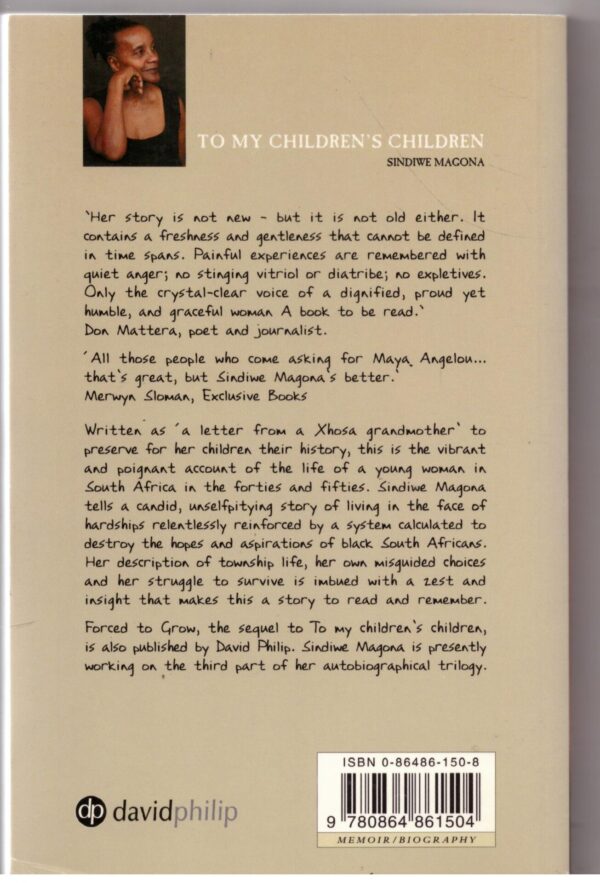 TO MY CHILDREN'S CHILDREN
SINDIWE MAGONA
'Her story is not new - but it is not old either. It
contains a freshness and gentleness that cannot be defined
in time spans. Painful experiences are remembered with
quiet anger; no stinging vitriol or diatribe; no expletives.
Only the crystal-clear voice of a dignified, proud yet
humble, and graceful woman A book to be read.'
Don Mattera, poet and journalist.
'All those people who come asking for Maya Angelou...
that's great, but Sindiwe Magona's better.'
Merwyn Sloman, Exclusive Books
Written as 'a letter from a Xhosa grandmother' to
preserve for her children their history, this is the vibrant
and poignant account of the life of a young woman in
South Africa in the forties and fifties. Sindiwe Magona
tells a candid, unselfpitying story of living in the face of
hardships relentlessly reinforced by a system calculated to
destroy the hopes and aspirations of black South Africans.
Her description of township life, her own misguided choices
and her struggle to survive is imbued with a zest and
insight that makes this a story to read and remember.
Forced to Grow, the sequel to To my children's children,
is also published by David Philip. Sindiwe Magona is presently
working on the third part of her autobiographical trilogy.
ISBN 0-86486-150-8
9 780864 861504
MEMOIR/BIOGRAPHY
dp davidphilip